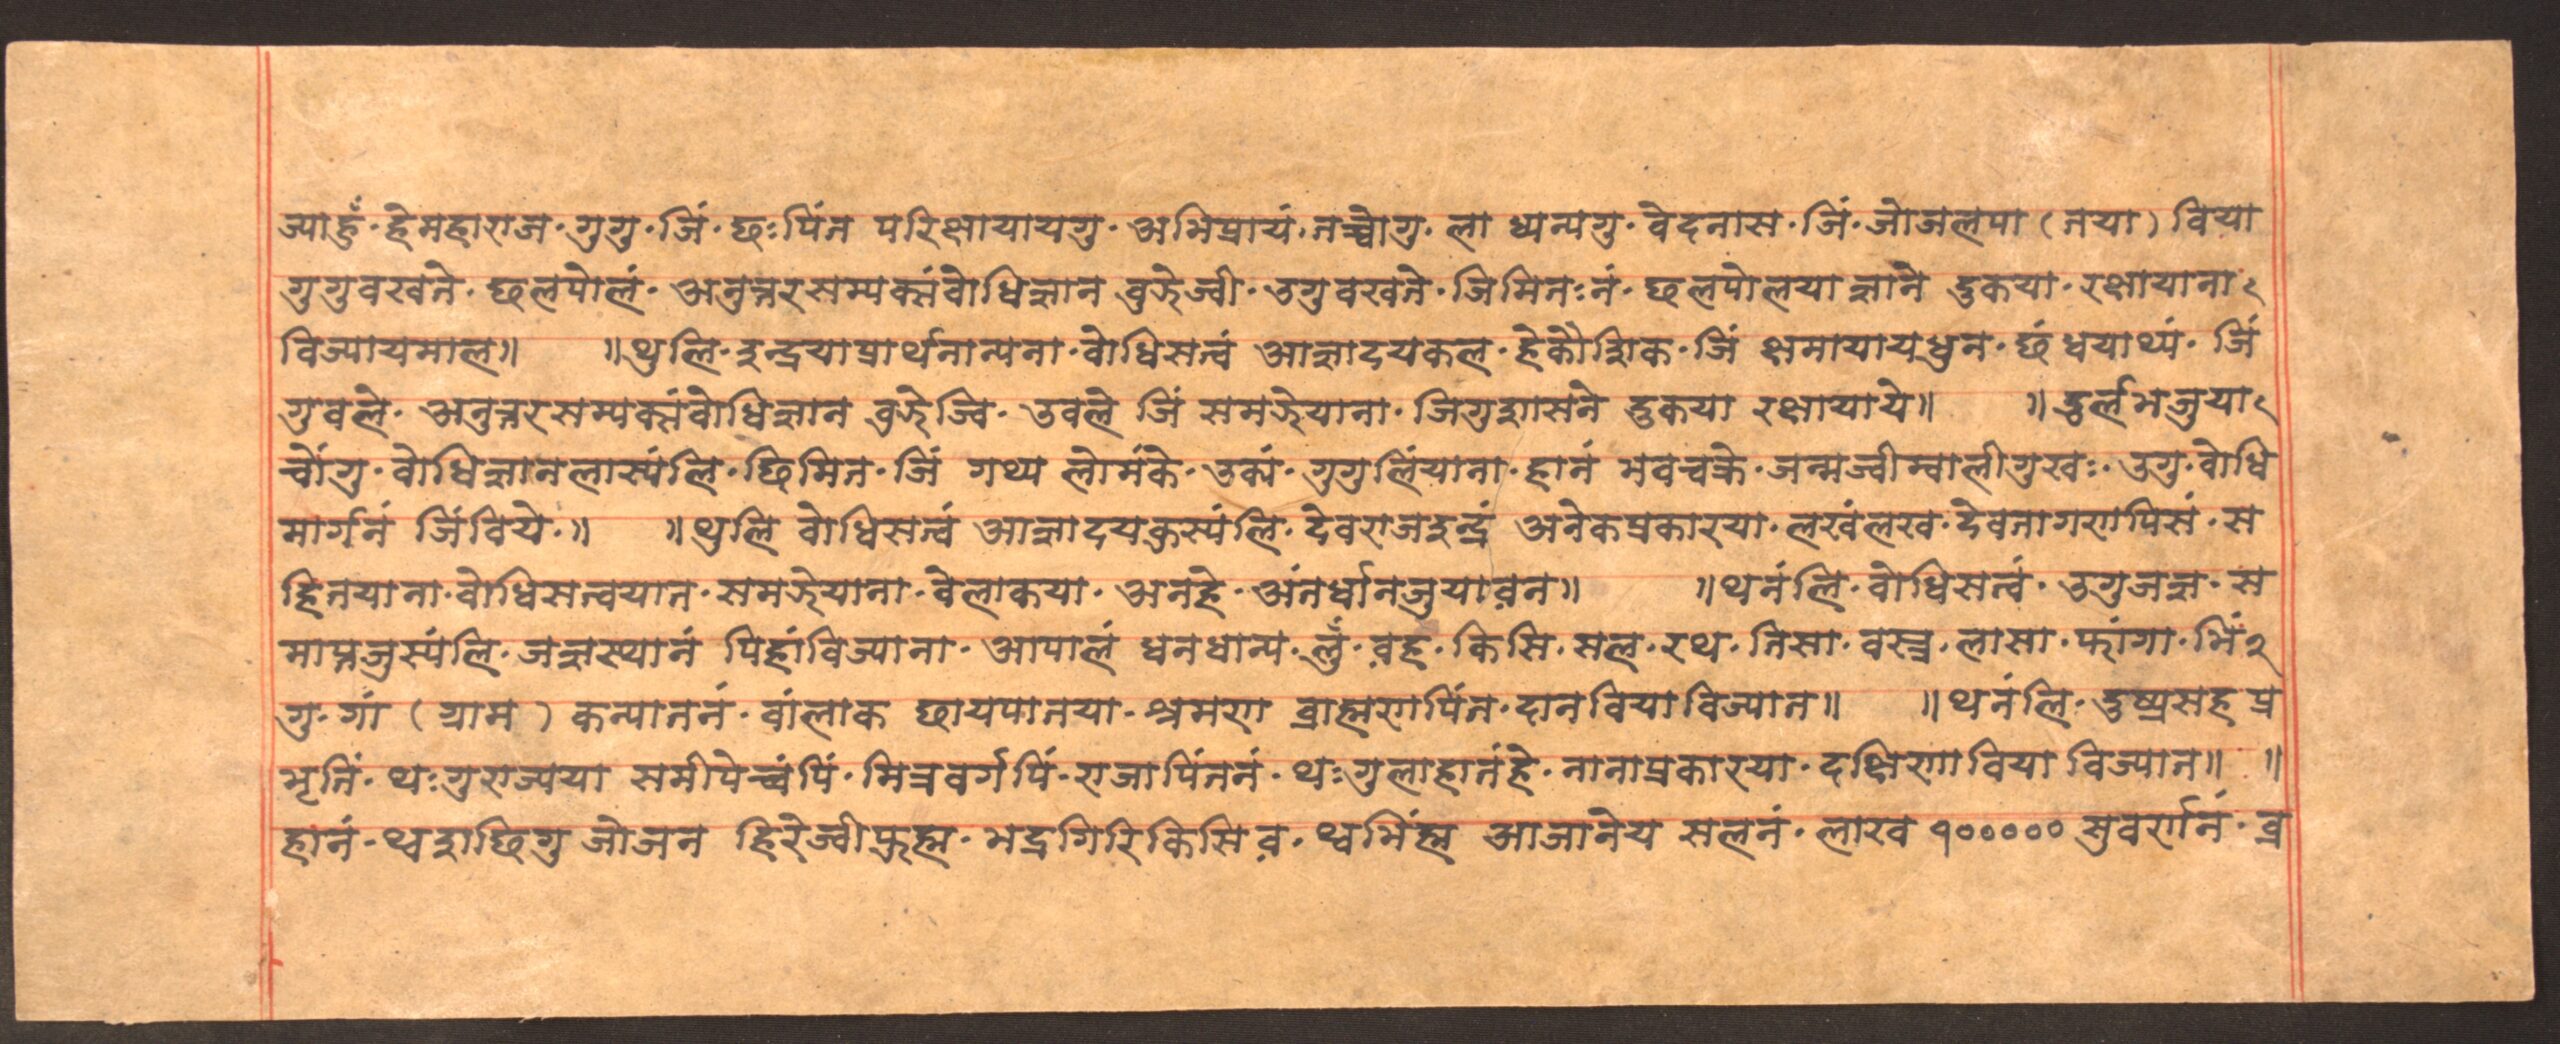 ज्याहुँ॰ हे महाराज॰ गुगु॰ जिं॰ छःपिंत परिक्षायायगु॰ अभिप्रायं॰ तच्चोगु॰ ला ध्यन्यगु॰ वेदनास॰ जिं॰ जोजलपा (जया) विया
गुगुवखते॰ छलपोलं॰ अनुत्तरसम्यक्संवोधिज्ञान वुझेज्वी॰ उगुवखते॰ जिमितःनं॰ छलपोलया ज्ञाने दुकया॰ रक्षायाना
विज्यायमाल॥ ॥थुलि॰ इन्द्रयाप्रार्थनान्यना॰ वोधिसत्वं आज्ञादयकल॰ हेकौशिक॰ जिं क्षमायायधुन॰ छं धयाथ्यं॰ जिं
गुवले॰ अनुत्तरसम्यक्संवोधिज्ञान वुझेज्वि॰ उवले जिं समझेयाना॰ जिगुशासने दुकया रक्षायाये॥ ॥दुर्लभजुया
चोंगु॰ वोधिज्ञानलास्यंलि॰ छिमित॰ जिं गथ्य लोमंके॰ उक्यं॰ गुगुलिंयाना॰ हानं भवचक्रे॰ जन्मज्वीम्वालीगुखः॰ उगु॰ वोधि
मार्गनं जिंविये॰॥ ॥थुलि वोधिसत्वं आज्ञादयकुस्यंलि॰ देवराजइन्द्रं अनेकप्रकारया॰ लखंलख॰ देवतागणपिसं॰ स
हितयाना॰ वोधिसत्वयात॰ समझेयाना॰ वेलाकया॰ अनहे॰ अंतर्धानजुयावन॥ ॥थनंलि॰ वोधिसत्वं॰ उगुजज्ञ॰ स
माप्तजुस्यंलि॰ जज्ञस्थानं पिहांविज्याना॰ आपालं धनधान्य॰ लुँ॰ वह॰ किसि॰ सल॰ रथ॰ तिसा॰ वस्त्र॰ लासा॰ फांगा॰ भिं२
गु॰ गां (ग्राम) कन्यातनं॰ वांलाक छायपातया॰ श्रमण ब्राह्मणपिंत॰ दानवियाविज्यात॥ ॥थनंलि॰ दुष्प्रसह प्र
भृतिं॰ थःगुराज्यया समीपेच्वंपिं॰ मित्रवर्गपिं॰ राजापिंतनं॰ थःगुलाहातंहे॰ नानाप्रकारया॰ दक्षिणाविया विज्यात॥ ॥
हानं॰ थ्वशछिगु जोजन हिरेज्वीफुह्म॰ भद्रगिरिकिसिव॰ थ्वभिंह्म आजानेय सलनं॰ लाख १००००० सुवर्णनं॰ व्र